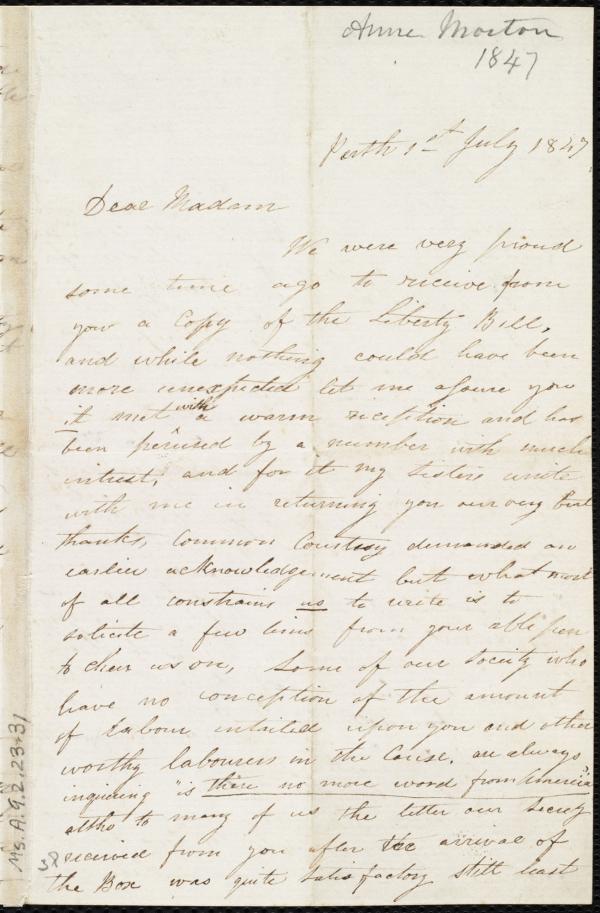 Anne Morton
1847
Perth 1st July 1847
Dear Madam
We were very proud
some time ago to receive from
you a Copy of the Liberty Bell,
and while nothing could have been
more unexpected let me assure you
it met with a warm reception and has
been perused by a number with much
intrest, and for it my Sisters unite
with me in returning you our very best
thanks, Common Courtesy demanded an
earlier acknowledgement but what most
of all constrains us to write is to
solicite a few lines from your able pen
to cheer us on, Some of our Society who
have no conception of the amount
of Labour intailed upon you and other
worthy labourers in the Cause, are always
inquiring "is there no more word from America"
altho to many of us the letter our Society
received from you after the arrival of
the Box was quite satisfactory still least
Ms.A.9.2.23.31